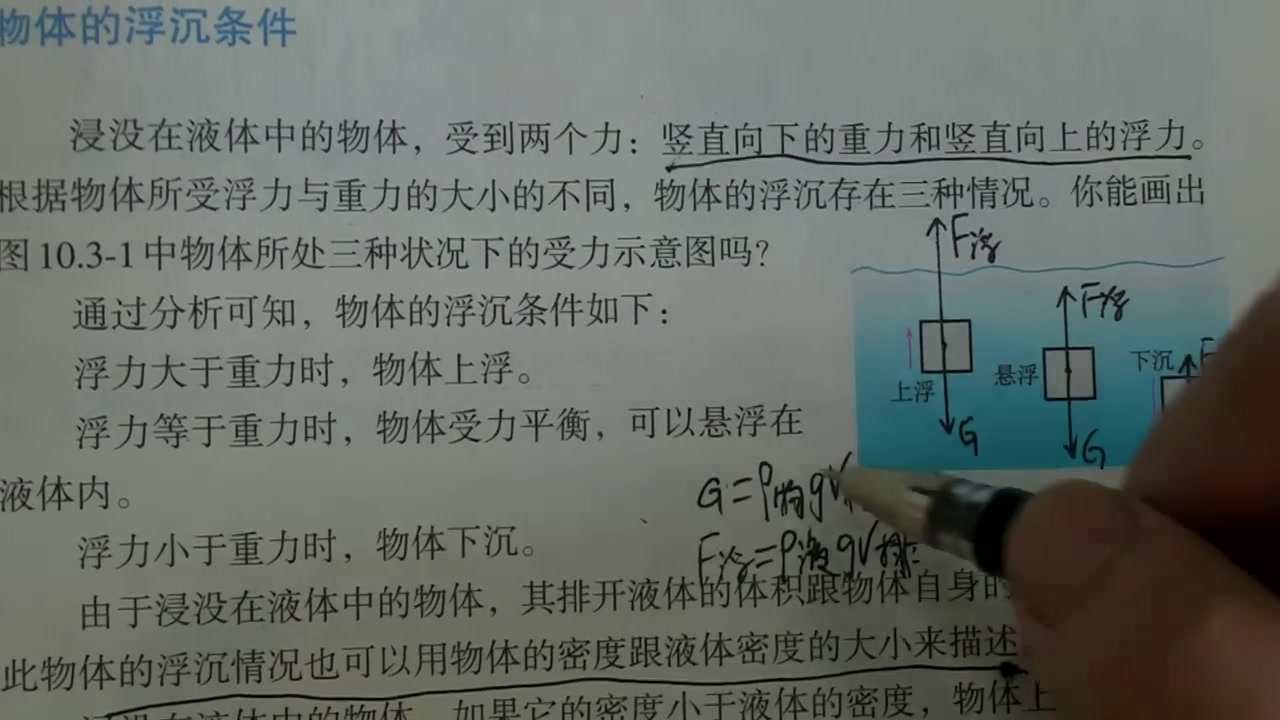 物体的浮沉条件
浸没在液体中的物体，受到两个力：竖直向下的重力和竖直向上的浮力。
根据物体所受浮力与重力的大小的不同，物体的浮沉存在三种情况。你能画出
图10.3-1中物体所处三种状况下的受力示意图吗？
通过分析可知，物体的浮沉条件如下：
浮力大于重力时，物体上浮。
浮力等于重力时，物体受力平衡，可以悬浮在
液体内。
浮力小于重力时，物体下沉。
由于浸没在液体中的物体，其排开液体的体积跟物体自身的
此物体的浮沉情况也可以用物体的密度跟液体密度的大小来描述。
浸没在液体中的物体，如果它的密度小于液体的密度，物体上
F浮
上浮
G
F浮
悬浮
G
下沉
F
G=ρ物gV
F浮=ρ液gV排